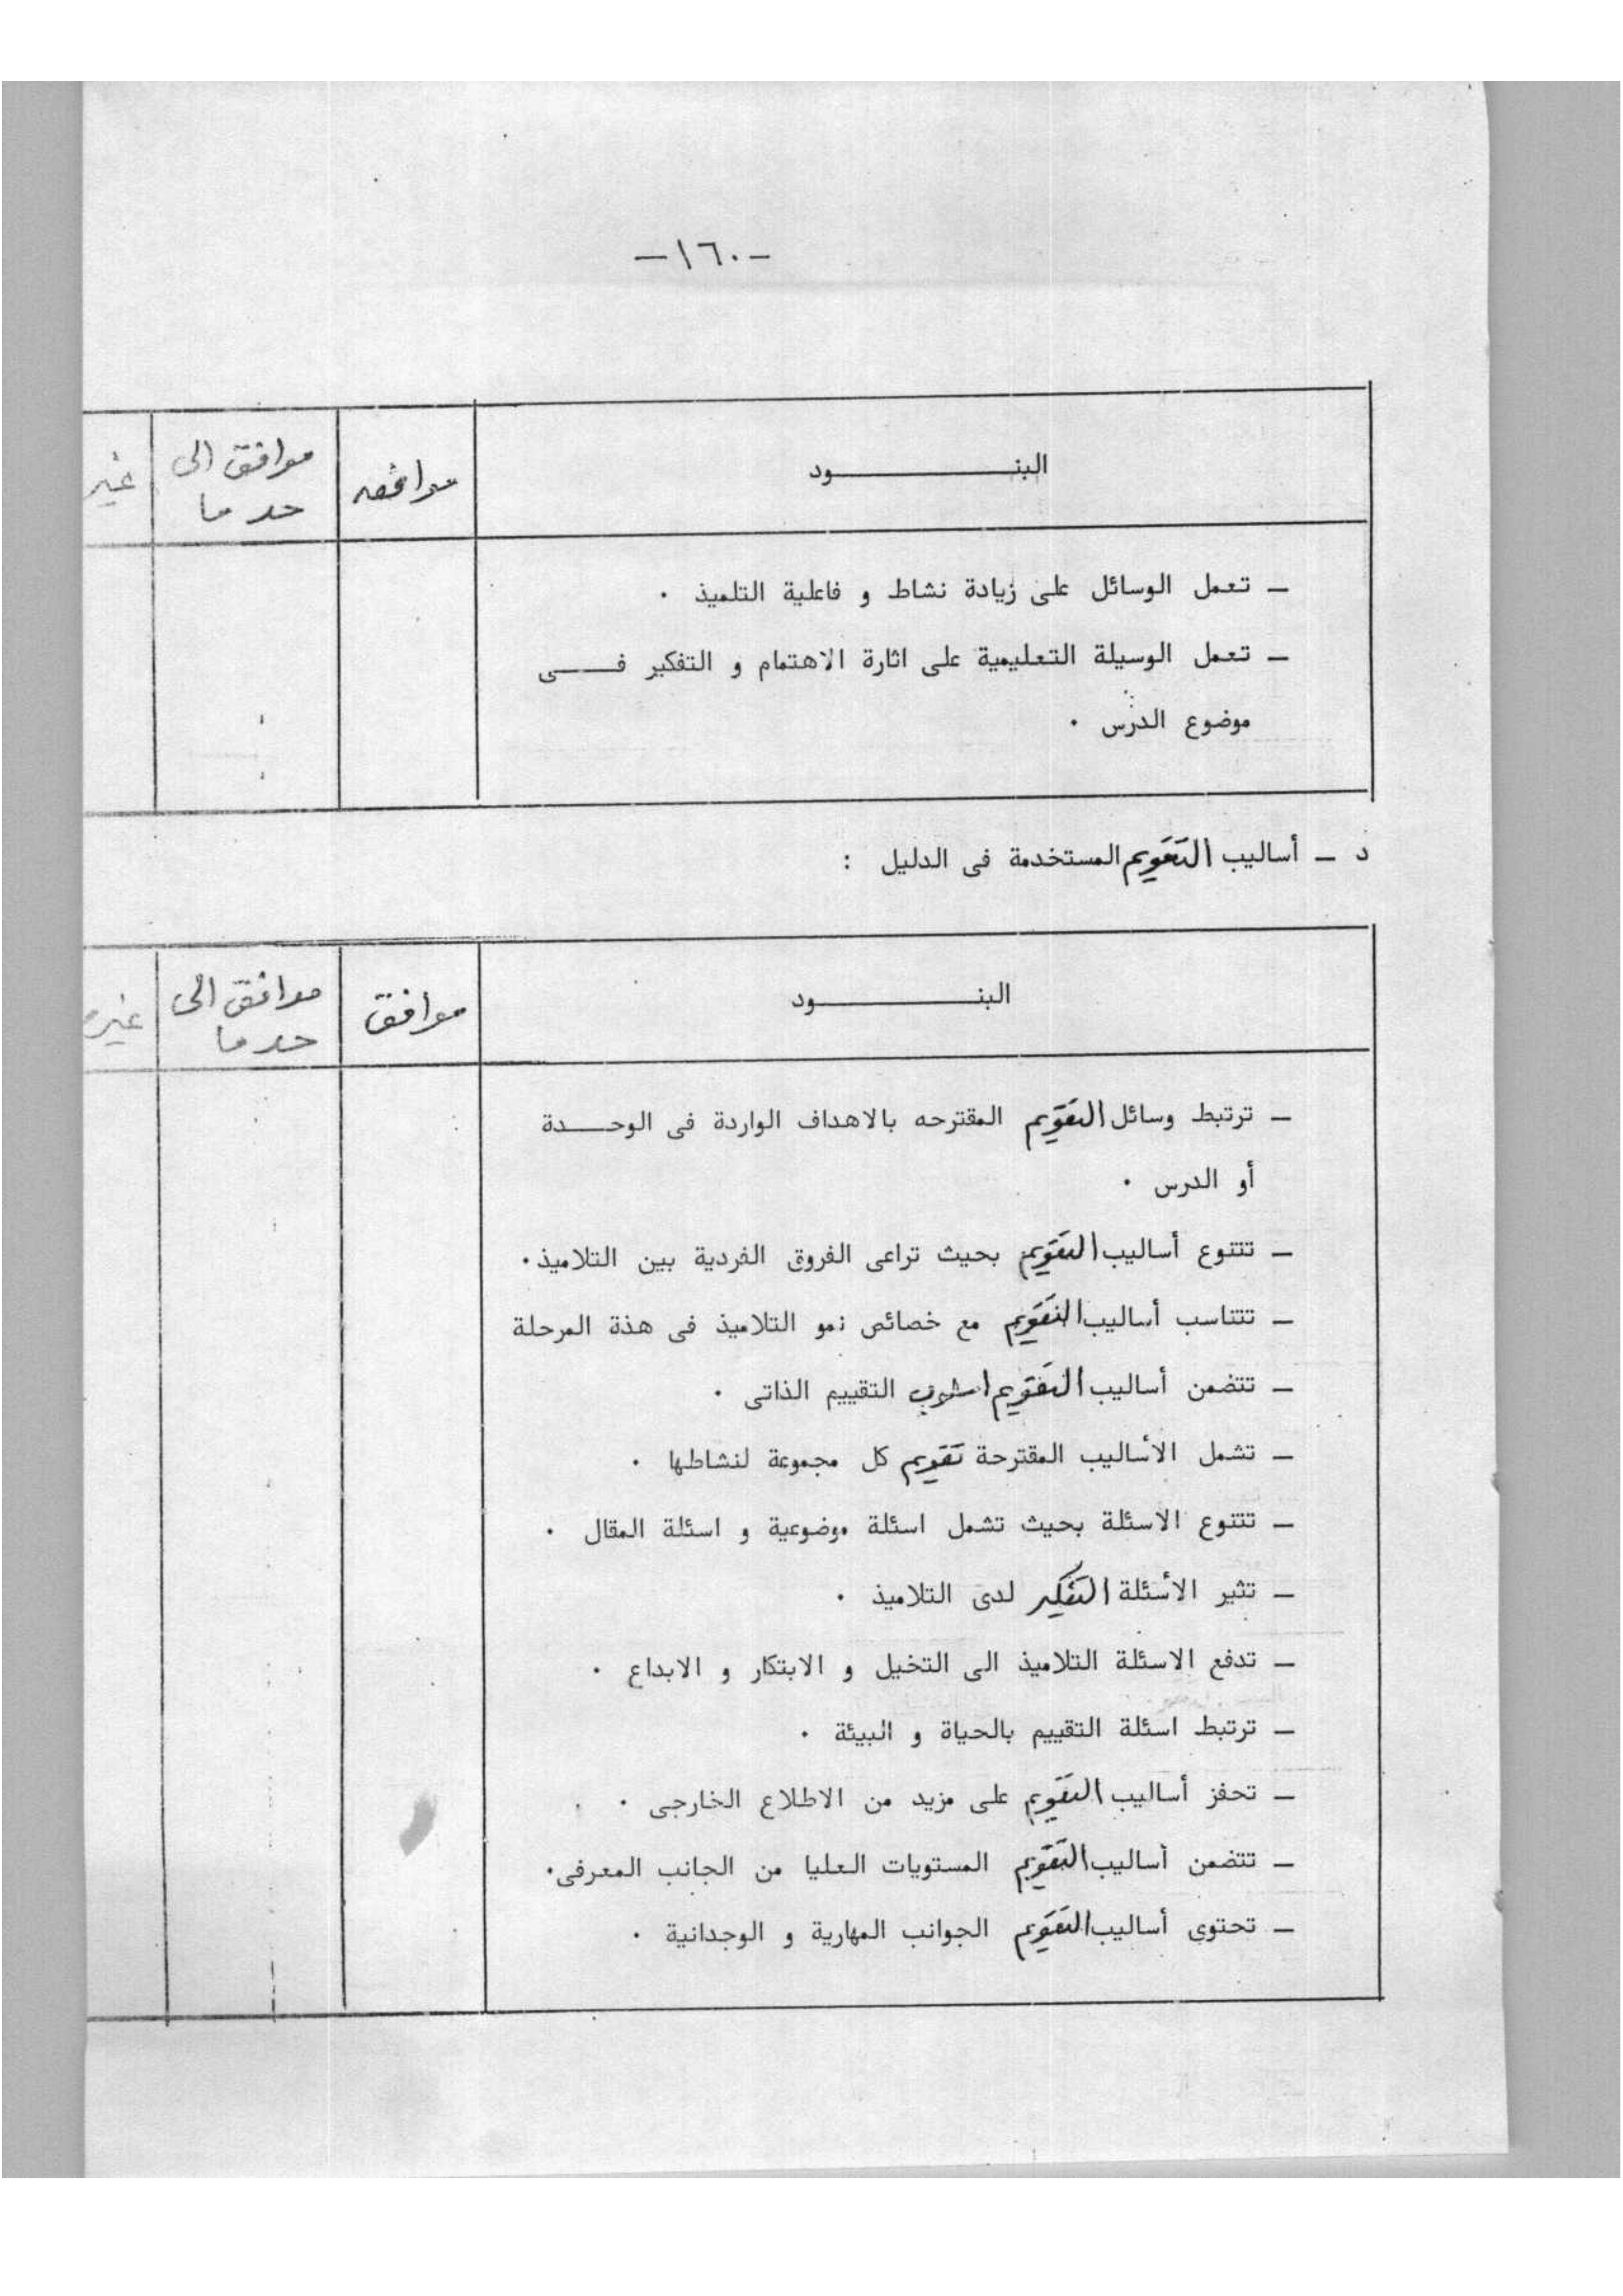 -١٦٠-
البنـــــــــــود موافق موافق الى غير
حد ما
ـ تعمل الوسائل على زيادة نشاط و فاعلية التلميذ ٠
ـ تعمل الوسيلة التعليمية على اثارة الاهتمام و التفكير فــــى
موضوع الدرس ٠
د ـ أساليب التقويم المستخدمة فى الدليل :
البنـــــــــــود موافق موافق الى غير
حد ما
ـ ترتبط وسائل التقويم المقترحه بالاهداف الواردة فى الوحــــدة
أو الدرس ٠
ـ تتنوع أساليب التقويم بحيث تراعى الفروق الفردية بين التلاميذ٠
ـ تتناسب أساليب التقويم مع خصائص نمو التلاميذ فى هذة المرحلة
ـ تتضمن أساليب التقويم اسلوب التقييم الذاتى ٠
ـ تشمل الأساليب المقترحة تقويم كل مجموعة لنشاطها ٠
ـ تتنوع الاسئلة بحيث تشمل اسئلة موضوعية و اسئلة المقال ٠
ـ تثير الأسئلة التفكير لدى التلاميذ ٠
ـ تدفع الاسئلة التلاميذ الى التخيل و الابتكار و الابداع ٠
ـ ترتبط اسئلة التقييم بالحياة و البيئة ٠
ـ تحفز أساليب التقويم على مزيد من الاطلاع الخارجى ٠
ـ تتضمن أساليب التقويم المستويات العليا من الجانب المعرفى٠
ـ تحتوى أساليب التقويم الجوانب المهارية و الوجدانية ٠